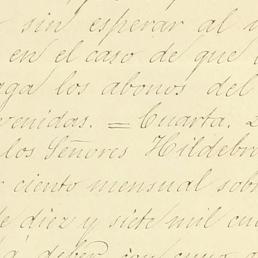 sin esperar al
en el caso de que
aga los abonos del
venidas. = Cuarta. 2
los Señores Hildebr
ciento mensual sobr
de diez y siete mil cu
deber